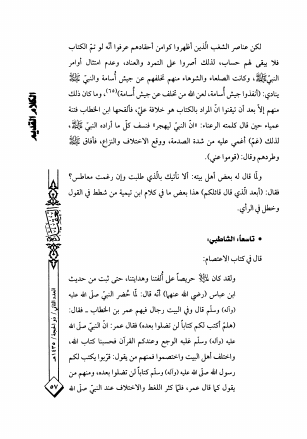 لكن عناصر الشغب الّذين أظهروا كوامن أحقادهم عرفوا أنّه لو تمّ الكتاب
فلا يبقى لهم حساب، لذلك أصروا على التمرد والعناد، وعدم امتثال أوامر
النبيّ ﷺ، وكانت الصلعاء والشوهاء منهم تخلفهم عن جيش أُسامة والنبيّ ﷺ
ينادي: (أنفذوا جيش أُسامة، لعن الله من تخلف عن جيش أُسامة)(٦٥)، وما كان ذلك
منهم إلاّ بعد أن تيقنوا انّ المراد بالكتاب هو خلافة عليّ، فألقحها ابن الخطاب فتنة
عمياء حين قال كلمته الرعناء: «انّ النبيّ ليهجر» فنسف كلّ ما أراده النبيّ ﷺ،
لذلك (غمّ) أُغمي عليه من شدة الصدمة، ووقع الاختلاف والنزاع، فأفاق ﷺ
وطردهم وقال: (قوموا عني).
ولمّا قال له بعض أهل بيته: ألا نأتيك بالّذي طلبت وإن رغمت معاطس؟
فقال: (أبعد الّذي قال قائلكم) هذا بعض ما في كلام ابن تيمية من شطط في القول
وخطل في الرأي.
• تاسعاً: الشاطبي:
قال في كتاب الاعتصام:
ولقد كان ﷺ حريصاً على أُلفتنا وهدايتنا، حتى ثبت من حديث
ابن عباس (رضي الله عنهما) أنّه قال: لمّا حُضر النبيّ صلّى الله عليه
(وآله) وسلّم قال وفي البيت رجال فيهم عمر بن الخطاب ـ فقال:
(هلمّ أكتب لكم كتاباً لن تضلوا بعده) فقال عمر: انّ النبيّ صلّى الله
عليه (وآله) وسلّم غلبه الوجع وعندكم القرآن فحسبنا كتاب الله،
واختلف أهل البيت واختصموا فمنهم من يقول: قربوا يكتب لكم
رسول الله صلّى الله عليه (وآله) كتاباً لن تضلوا بعده، ومنهم من
يقول كما قال عمر، فلمّا كثر اللغط والاختلاف عند النبيّ صلّى الله
العدد الثاني / ذو الحجة / ١٤٣٥هـ
٥٧